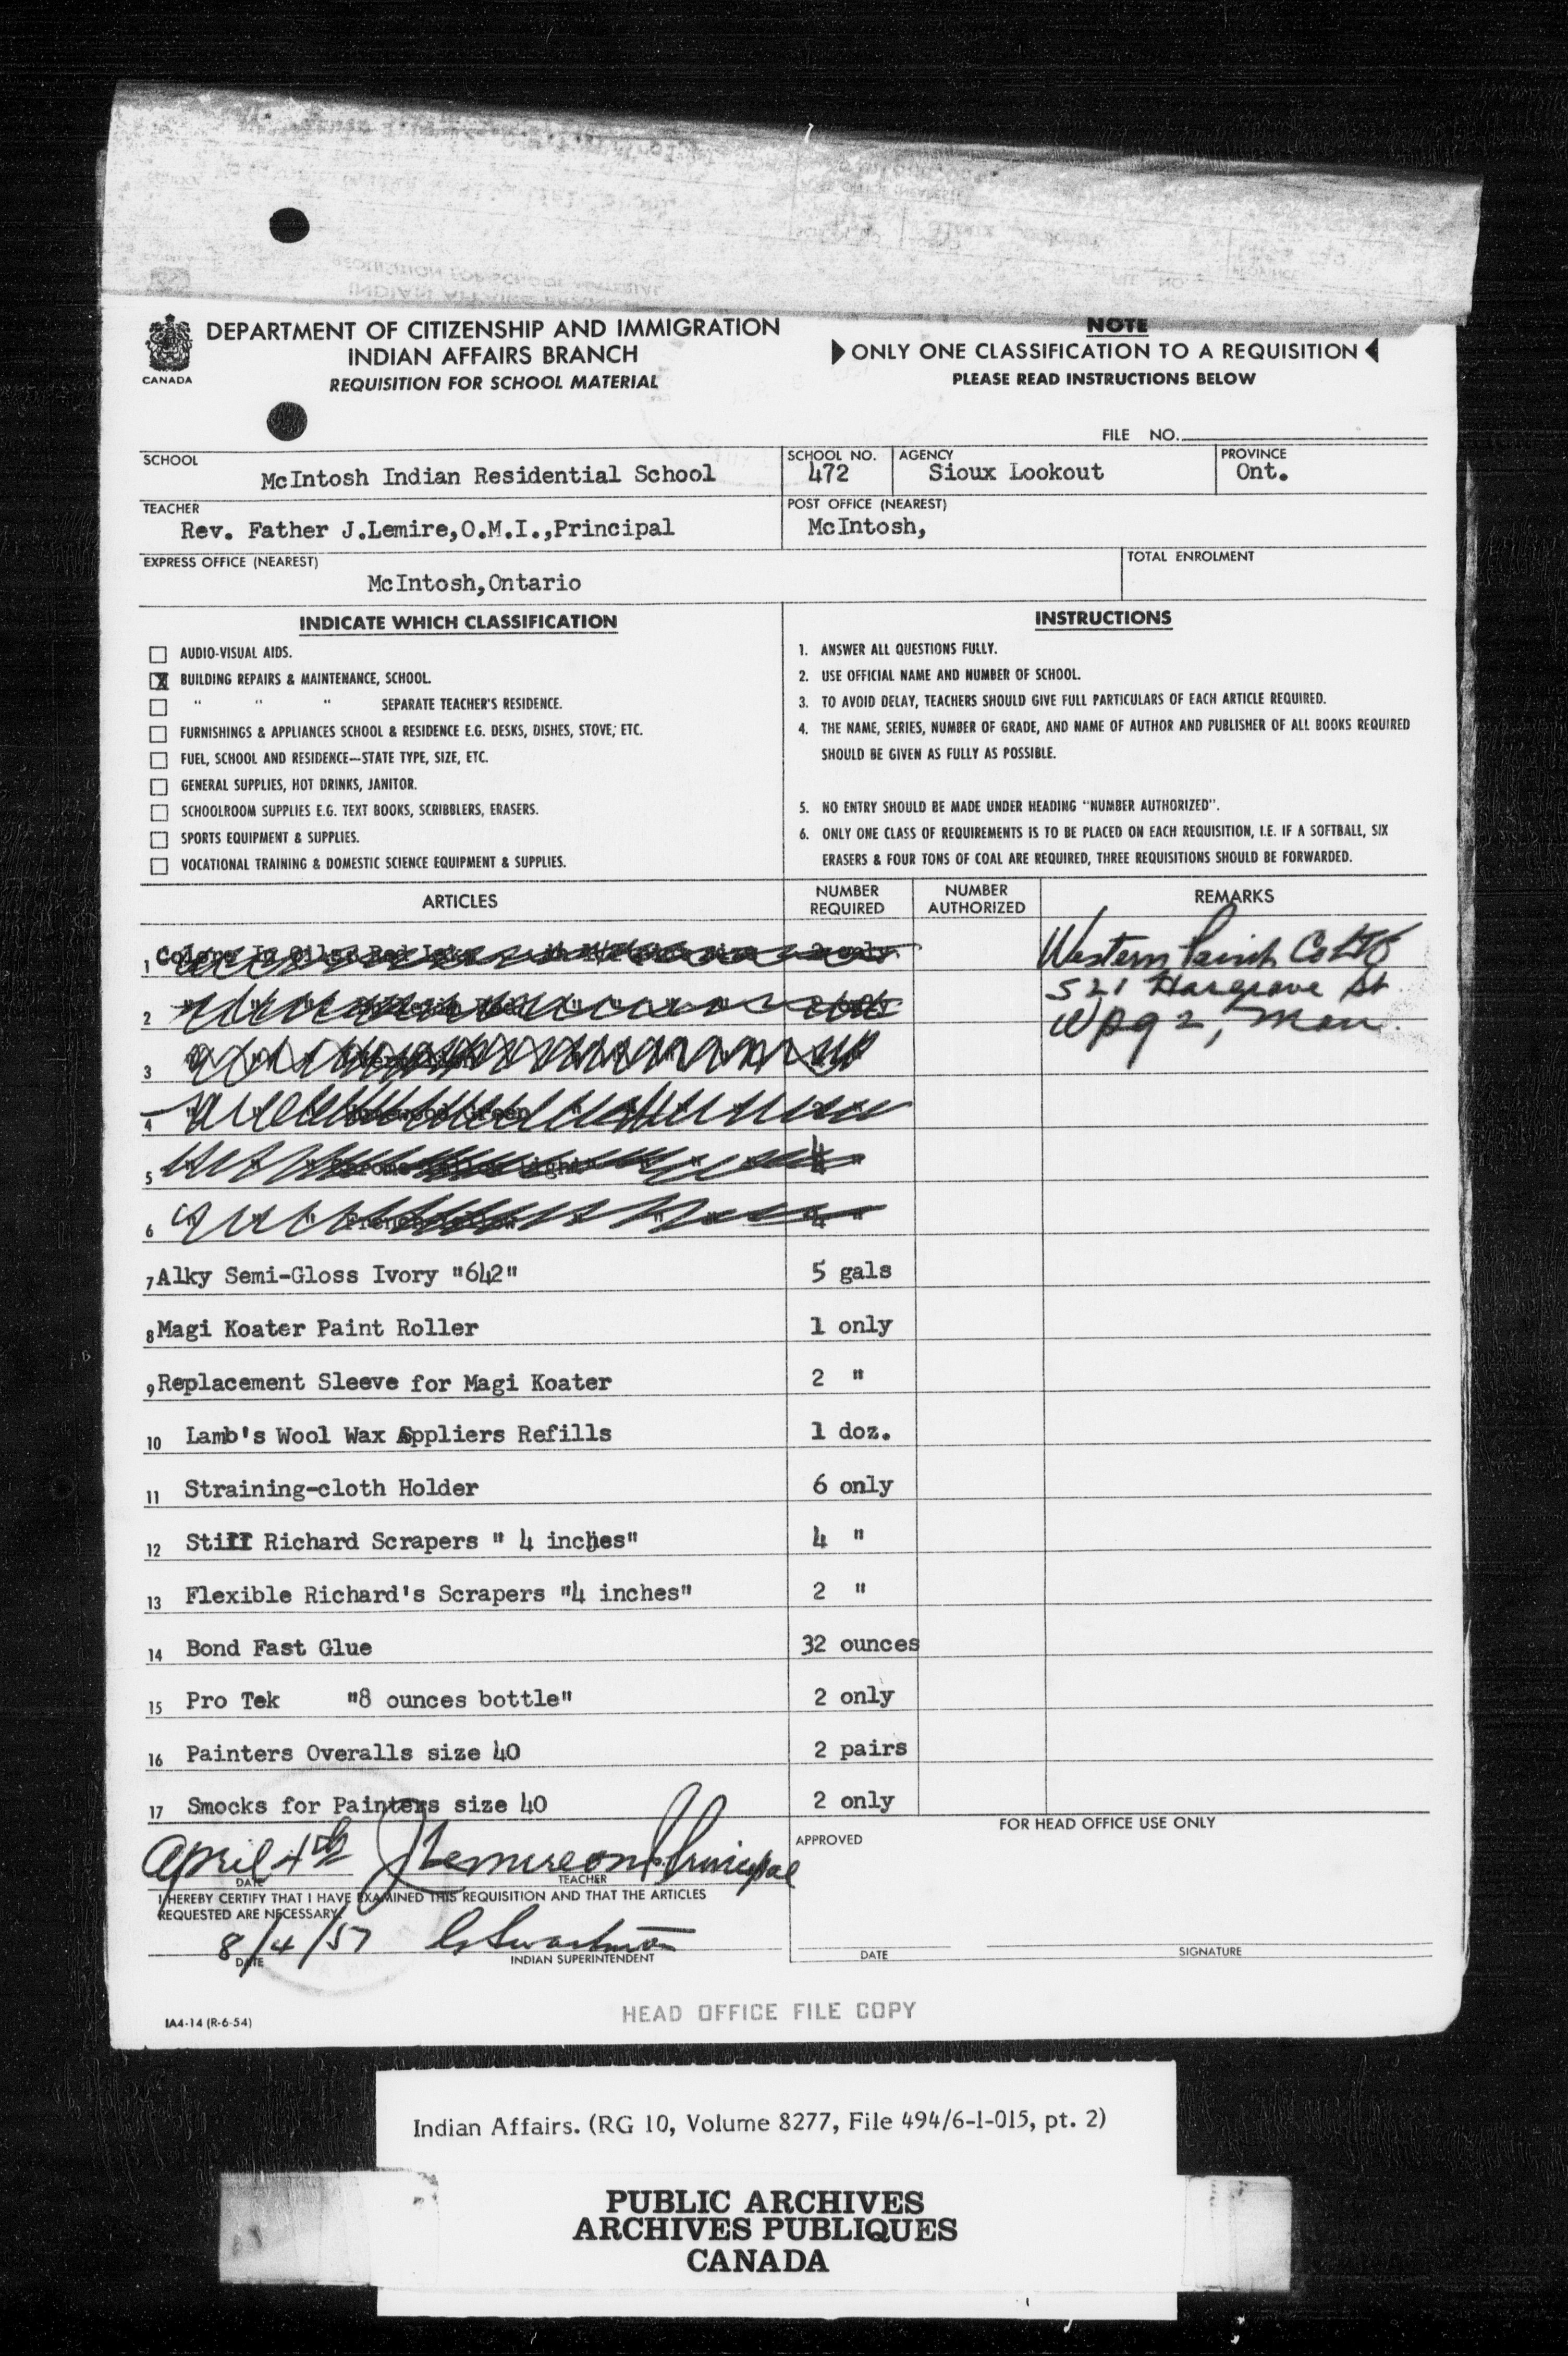 DEPARTMENT OF CITIZENSHIP AND IMMIGRATION
INDIAN AFFAIRS BRANCH
REQUISITION FOR SCHOOL MATERIAL
CANADA
NOTE
ONLY ONE CLASSIFICATION TO A REQUISITION
PLEASE READ INSTRUCTIONS BELOW
FILE NO.
SCHOOL
McIntosh Indian Residential School
SCHOOL NO.
472
AGENCY
Sioux Lookout
PROVINCE
Ont.
TEACHER
Rev. Father J.Lemire,O.M.I.,Principal
POST OFFICE (NEAREST)
McIntosh,
EXPRESS OFFICE (NEAREST)
McIntosh,Ontario
TOTAL ENROLMENT
INDICATE WHICH CLASSIFICATION
AUDIO-VISUAL AIDS.
X BUILDING REPAIRS & MAINTENANCE, SCHOOL.
" " " SEPARATE TEACHER'S RESIDENCE.
FURNISHINGS & APPLIANCES SCHOOL & RESIDENCE E.G. DESKS, DISHES, STOVE; ETC.
FUEL, SCHOOL AND RESIDENCE—STATE TYPE, SIZE, ETC.
GENERAL SUPPLIES, HOT DRINKS, JANITOR.
SCHOOLROOM SUPPLIES E.G. TEXT BOOKS, SCRIBBLERS, ERASERS.
SPORTS EQUIPMENT & SUPPLIES.
VOCATIONAL TRAINING & DOMESTIC SCIENCE EQUIPMENT & SUPPLIES.
INSTRUCTIONS
1. ANSWER ALL QUESTIONS FULLY.
2. USE OFFICIAL NAME AND NUMBER OF SCHOOL.
3. TO AVOID DELAY, TEACHERS SHOULD GIVE FULL PARTICULARS OF EACH ARTICLE REQUIRED.
4. THE NAME, SERIES, NUMBER OF GRADE, AND NAME OF AUTHOR AND PUBLISHER OF ALL BOOKS REQUIRED
SHOULD BE GIVEN AS FULLY AS POSSIBLE.
5. NO ENTRY SHOULD BE MADE UNDER HEADING "NUMBER AUTHORIZED".
6. ONLY ONE CLASS OF REQUIREMENTS IS TO BE PLACED ON EACH REQUISITION, I.E. IF A SOFTBALL, SIX
ERASERS & FOUR TONS OF COAL ARE REQUIRED, THREE REQUISITIONS SHOULD BE FORWARDED.
ARTICLES
NUMBER REQUIRED
NUMBER AUTHORIZED
REMARKS
Western Paint Co Ltd
521 Hargrave St
Wpg 2, Man.
1 Colors In
2
3
4 Green
5 4 "
6 4 "
7 Alky Semi-Gloss Ivory "642" 5 gals
8 Magi Koater Paint Roller 1 only
9 Replacement Sleeve for Magi Koater 2 "
10 Lamb's Wool Wax Appliers Refills 1 doz.
11 Straining-cloth Holder 6 only
12 Stiff Richard Scrapers " 4 inches" 4 "
13 Flexible Richard's Scrapers "4 inches" 2 "
14 Bond Fast Glue 32 ounces
15 Pro Tek "8 ounces bottle" 2 only
16 Painters Overalls size 40 2 pairs
17 Smocks for Painters size 40 2 only
April 4th J Lemire omi Principal
DATE TEACHER
I HEREBY CERTIFY THAT I HAVE EXAMINED THIS REQUISITION AND THAT THE ARTICLES
REQUESTED ARE NECESSARY.
8/4/57 G Swartman
DATE INDIAN SUPERINTENDENT
FOR HEAD OFFICE USE ONLY
APPROVED
DATE SIGNATURE
HEAD OFFICE FILE COPY
IA4-14 (R-6-54)
Indian Affairs. (RG 10, Volume 8277, File 494/6-1-015, pt. 2)
PUBLIC ARCHIVES
ARCHIVES PUBLIQUES
CANADA